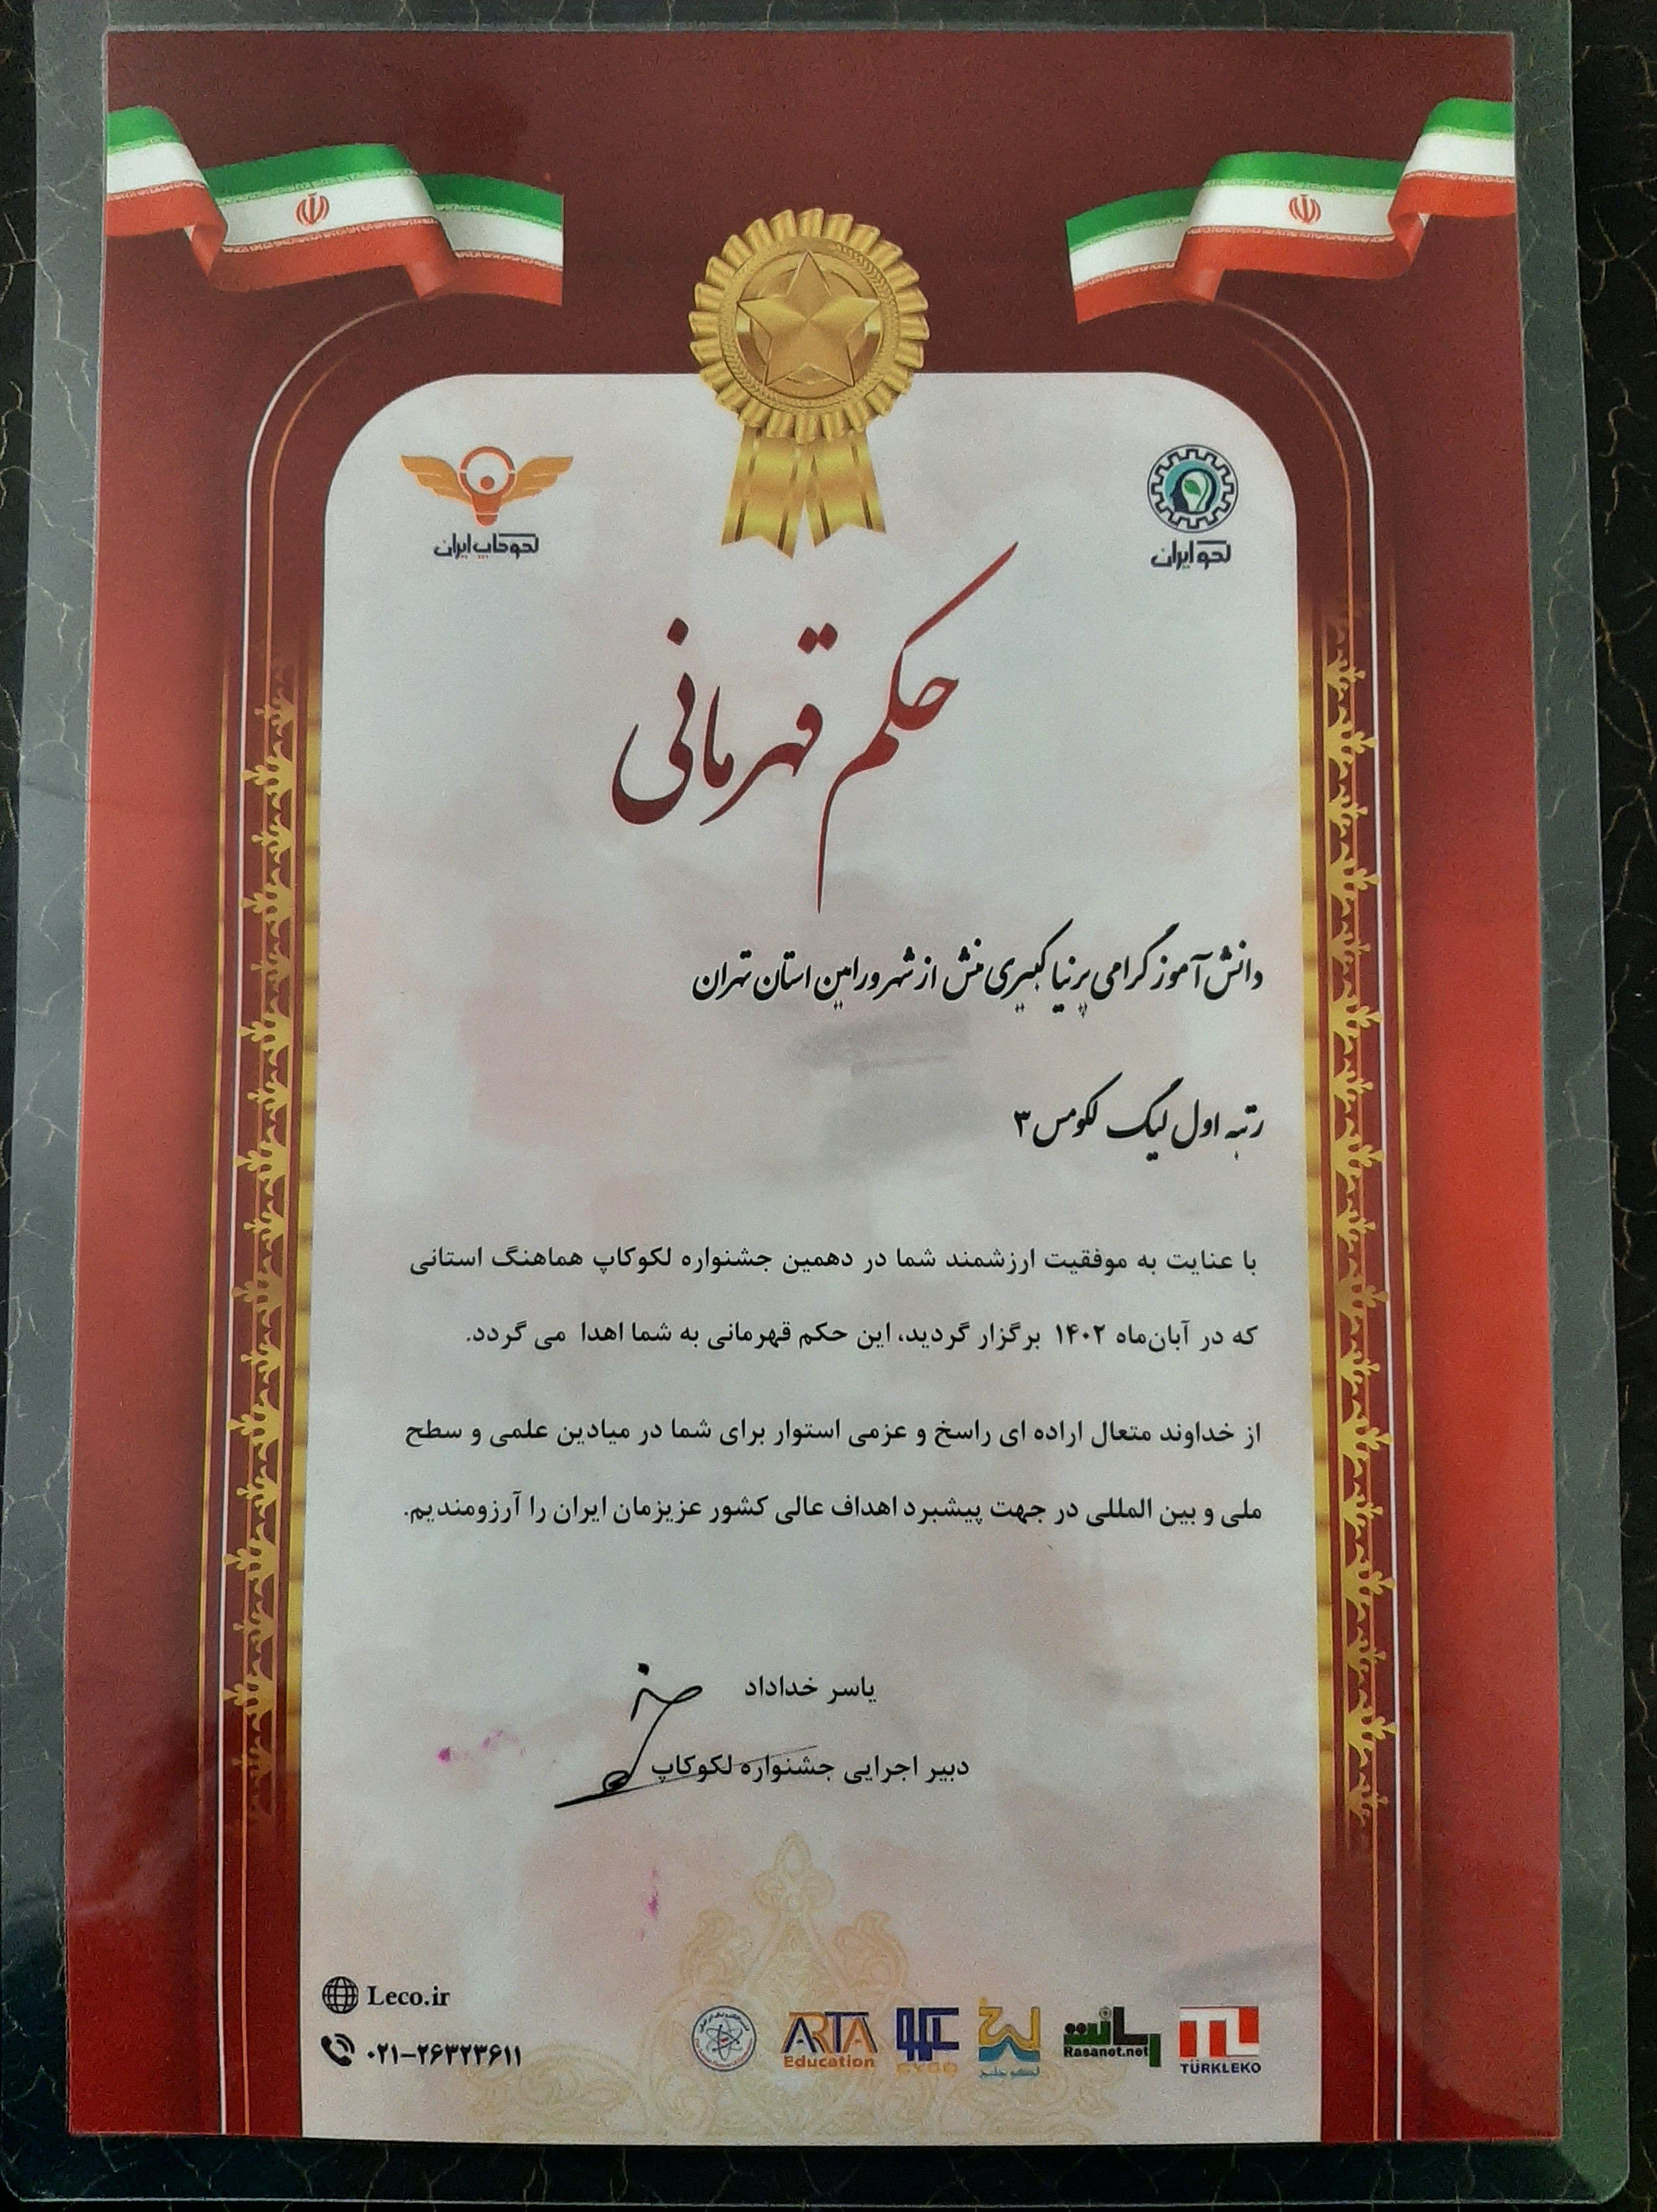 لکوکاپ ایران
لکو ایران
حکم قهرمانی
دانش آموز گرامی پرنیا کبیری منش از شهر ورامین استان تهران
رتبه اول لیگ لکومس ۳
با عنایت به موفقیت ارزشمند شما در دهمین جشنواره لکوکاپ هماهنگ استانی
که در آبان‌ماه ۱۴۰۲ برگزار گردید، این حکم قهرمانی به شما اهدا می گردد.
از خداوند متعال اراده ای راسخ و عزمی استوار برای شما در میادین علمی و سطح
ملی و بین المللی در جهت پیشبرد اهداف عالی کشور عزیزمان ایران را آرزومندیم.
یاسر خداداد
دبیر اجرایی جشنواره لکوکاپ
Leco.ir
۰۲۱-۲۶۳۲۳۶۱۱
ARTA
Education
رسانت
Rasanet.net
TL
TÜRKLEKO